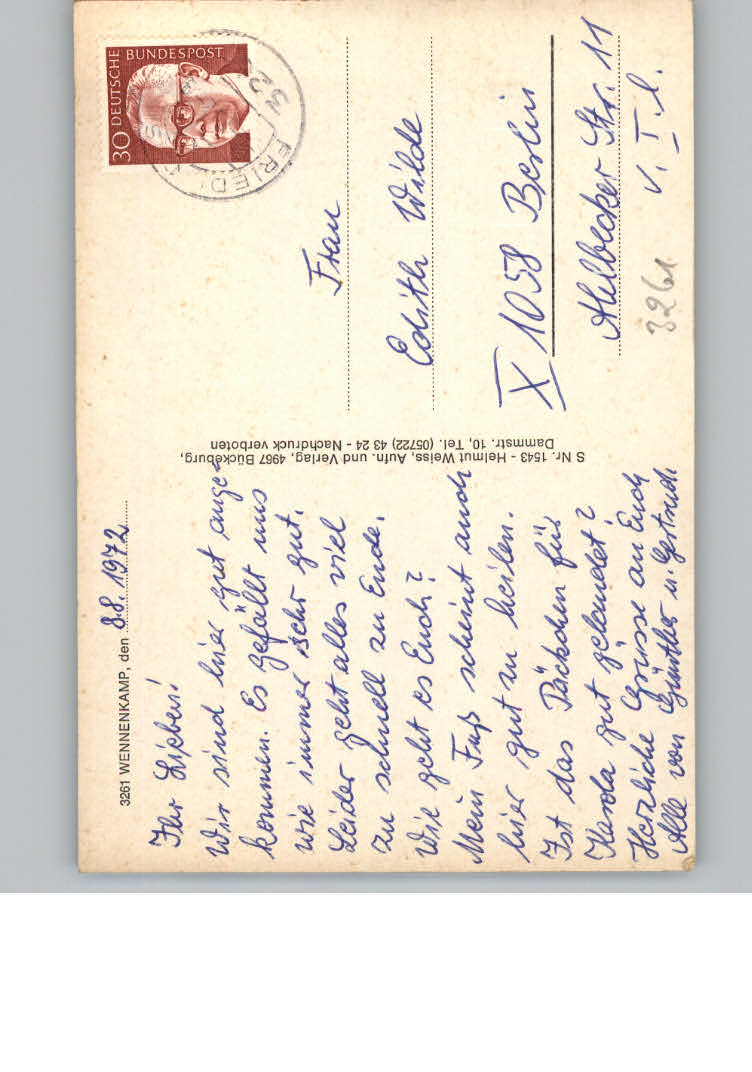 3261 WENNENKAMP, den 8.8.1972
Ihr Lieben!
Wir sind hier gut ange-
kommen. Es gefällt uns
wie immer sehr gut.
Leider geht alles viel
zu schnell zu Ende.
Wie geht es Euch?
Mein Fuß scheint auch
hier gut zu heilen.
Ist das Päckchen für
Karola gut gelandet?
Herzliche Grüsse an Euch
Alle von Günther u. Gertrud
S Nr. 1543 - Helmut Weiss, Aufn. und Verlag, 4967 Bückeburg,
Dammstr. 10, Tel. (05722) 43 24 - Nachdruck verboten
30 DEUTSCHE BUNDESPOST
32
Frau
Edith Wilde
X 1058 Berlin
Ahlbecker Str. 11
v. I. l.
3261